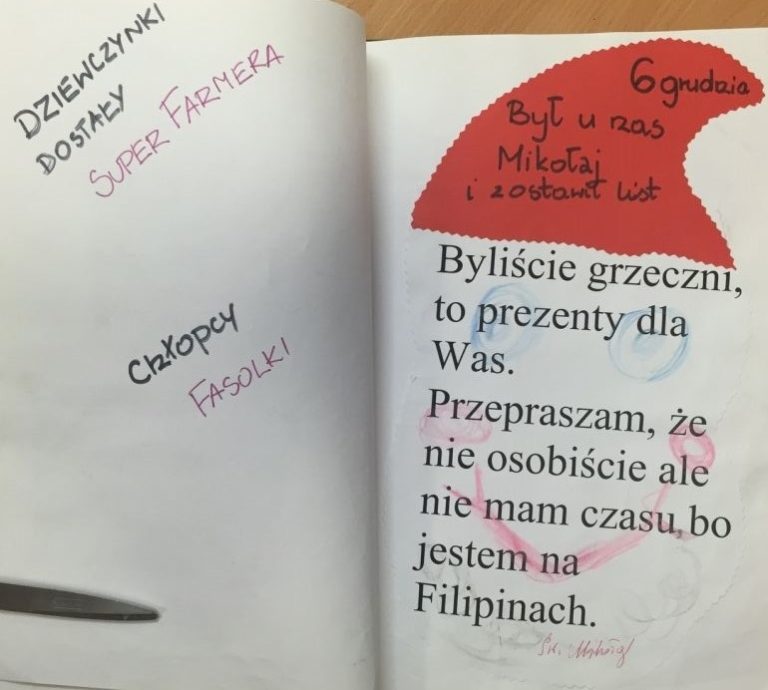 DZIEWCZYNKI
DOSTAŁY
SUPER FARMERA
CHŁOPCY
FASOLKI
6 grudzia
Był u nas
Mikołaj
i zostawił list
Byliście grzeczni,
to prezenty dla
Was.
Przepraszam, że
nie osobiście ale
nie mam czasu,bo
jestem na
Filipinach.
Św. Mikołaj